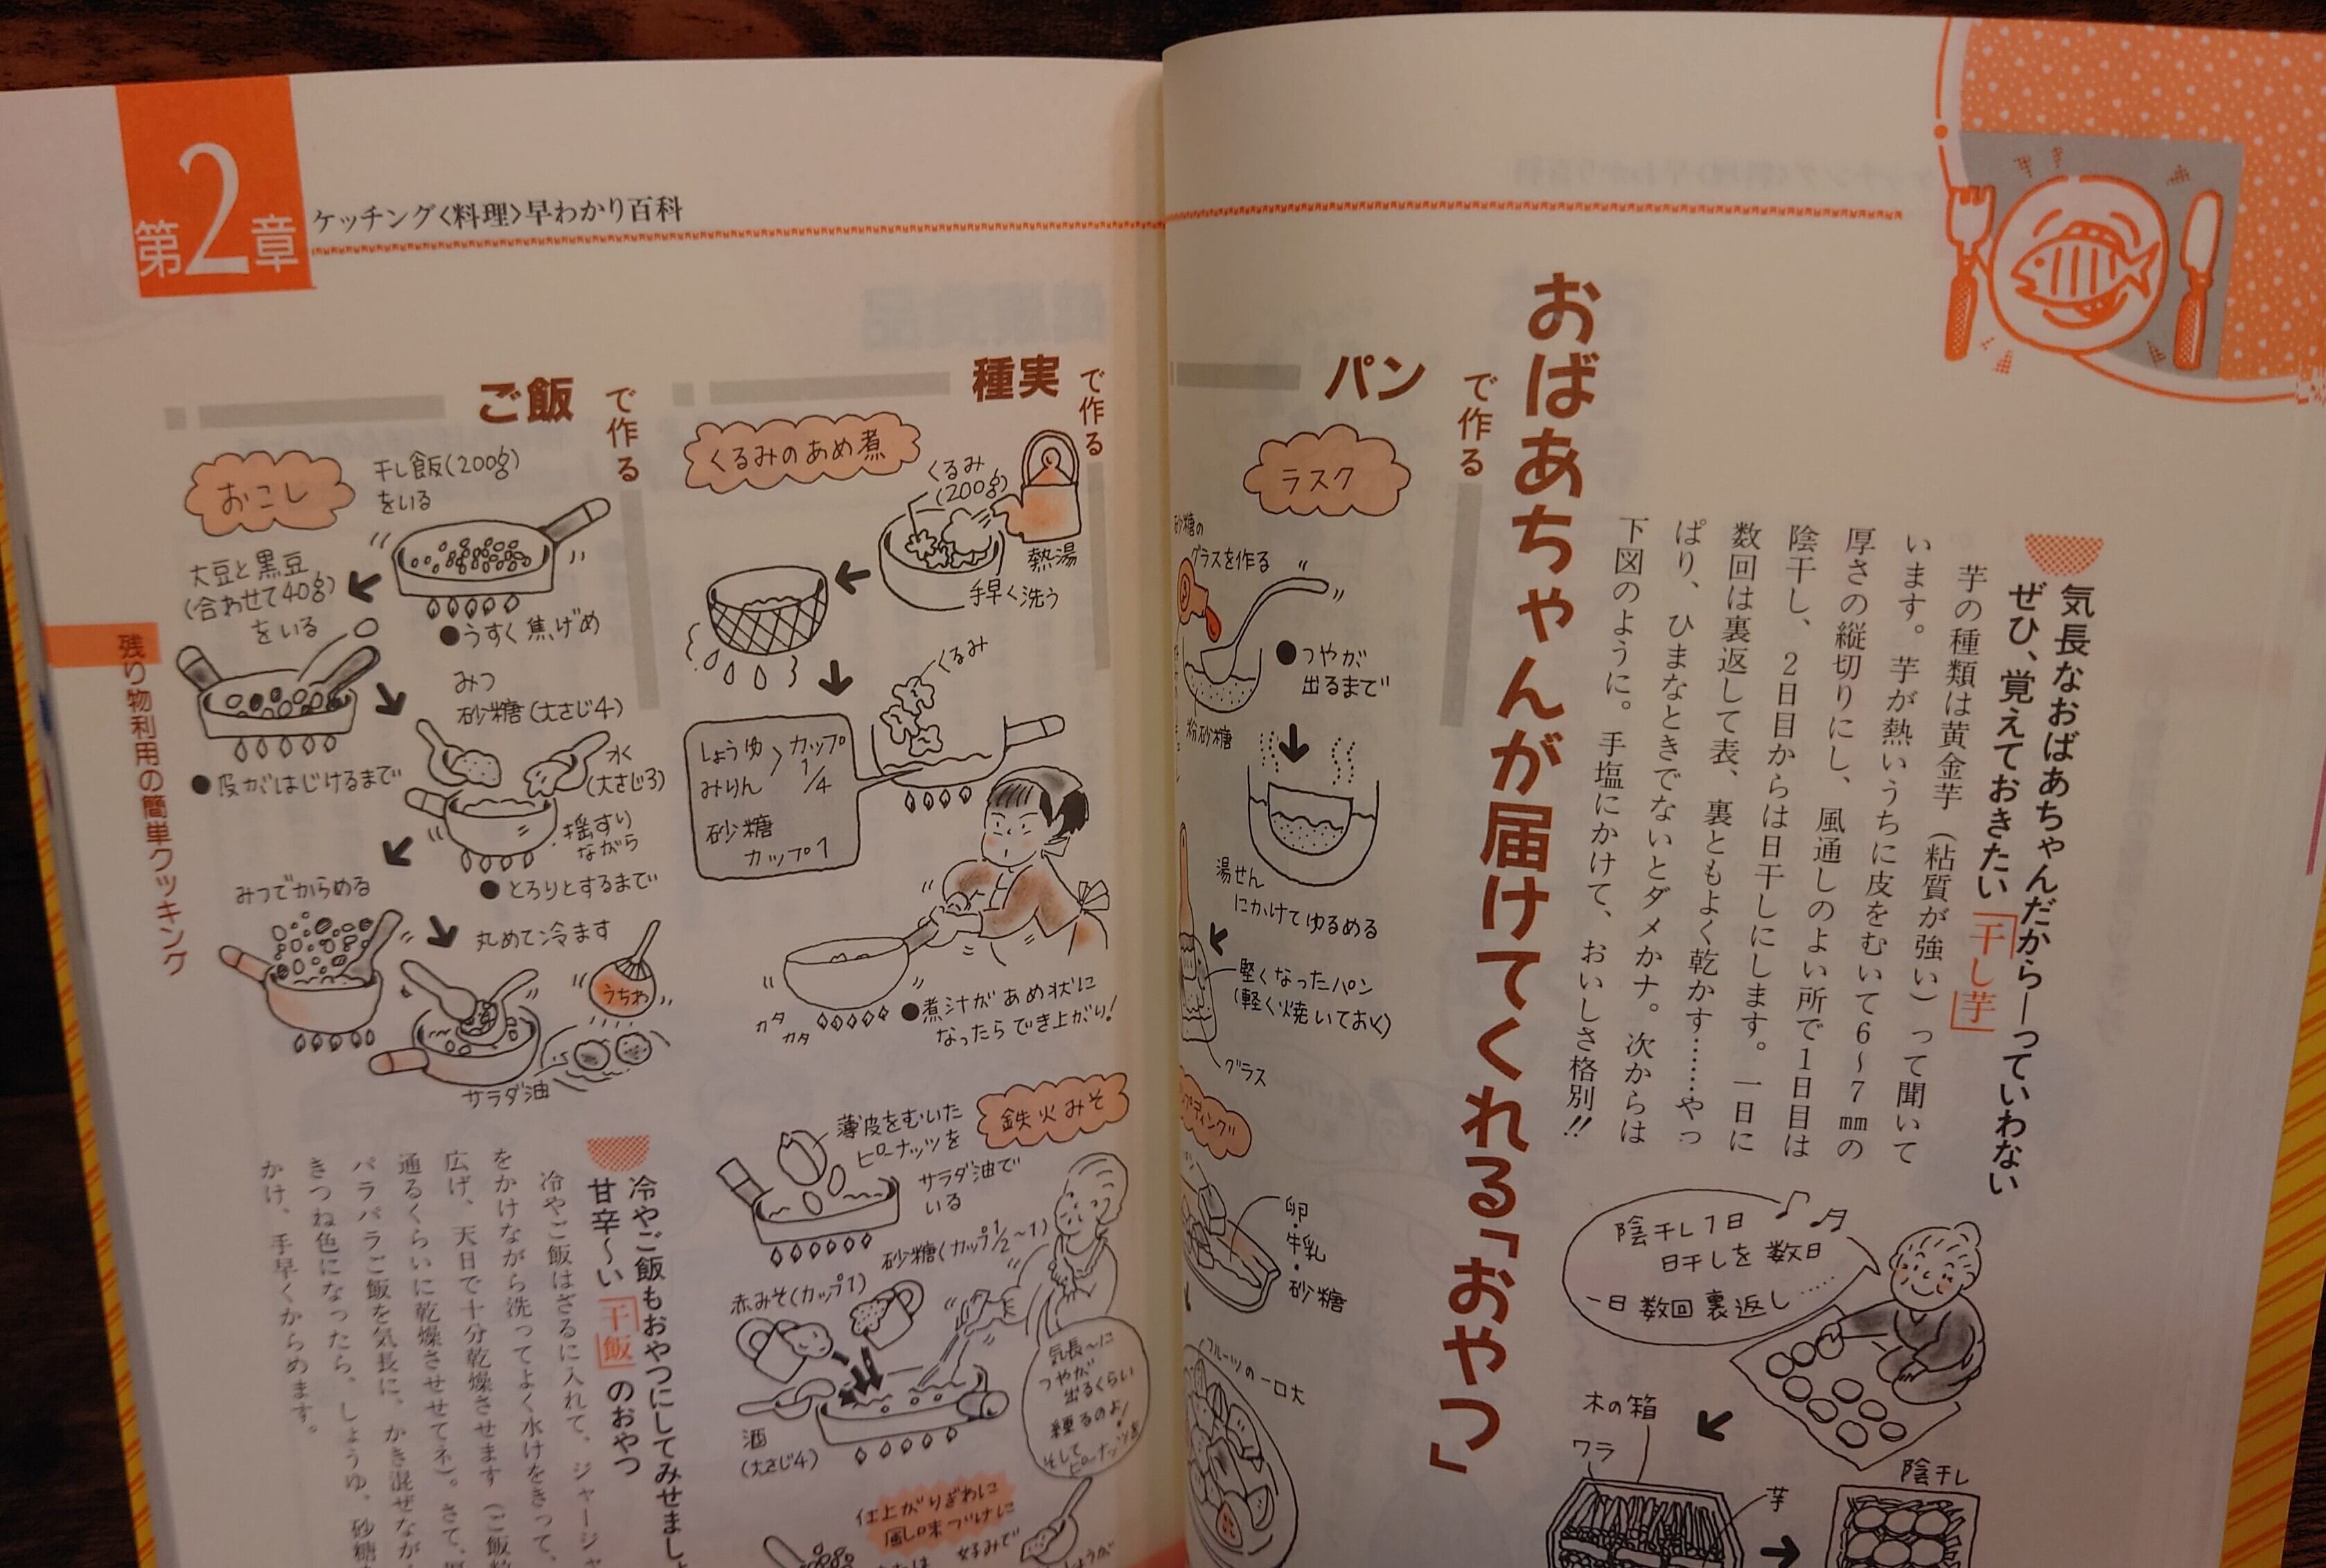 おばあちゃんが届けてくれる「おやつ」
気長なおばあちゃんだから―っていわない
ぜひ、覚えておきたい「干し芋」
芋の種類は黄金芋（粘質が強い）って聞いて
います。芋が熱いうちに皮をむいて6〜7㎜の
厚さの縦切りにし、風通しのよい所で1日目は
陰干し、2日目からは日干しにします。一日に
数回は裏返して表、裏ともよく乾かす……やっ
ぱり、ひまなときでないとダメかナ。次からは
下図のように。手塩にかけて、おいしさ格別!!
陰干し1日
日干しを数日
一日数回裏返し……
木の箱
ワラ
芋
陰干し
パンで作る
ラスク
砂糖の
グラスを作る
●つやが
出るまで
粉砂糖
湯せん
にかけてゆるめる
堅くなったパン
(軽く焼いておく)
グラス
卵・牛乳・砂糖
フルーツの一口大
第2章
ケッチング〈料理〉早わかり百科
種実で作る
くるみのあめ煮
くるみ
(200g)
熱湯
手早く洗う
くるみ
しょうゆ
みりん
カップ1/4
砂糖
カップ1
カタカタ
●煮汁があめ状に
なったらでき上がり!
鉄火みそ
薄皮をむいた
ピーナッツを
サラダ油で
いる
砂糖(カップ1/2〜1)
赤みそ(カップ1)
酒
(大さじ4)
気長〜に
つやが
出るくらい
練るのよ!
そして
ピーナッツを
仕上がりぎわに
風味づけに
好みで
ご飯で作る
おこし
干し飯(200g)
をいる
●うすく焦げめ
大豆と黒豆
(合わせて40g)
をいる
●皮がはじけるまで
みつ
砂糖(大さじ4)
水
(大さじ3)
揺すり
ながら
●とろりとするまで
みつでからめる
丸めて冷ます
うちわ
サラダ油
冷やご飯もおやつにしてみせましょ
甘辛〜い「干飯」のおやつ
冷やご飯はざるに入れて、ジャージャ
をかけながら洗ってよく水けをきって、
広げ、天日で十分乾燥させます（ご飯粒
通るくらいに乾燥させてネ）。さて、厚
パラパラご飯を気長に、かき混ぜなが
きつね色になったら、しょうゆ、砂糖
かけ、手早くからめます。
残り物利用の簡単クッキング